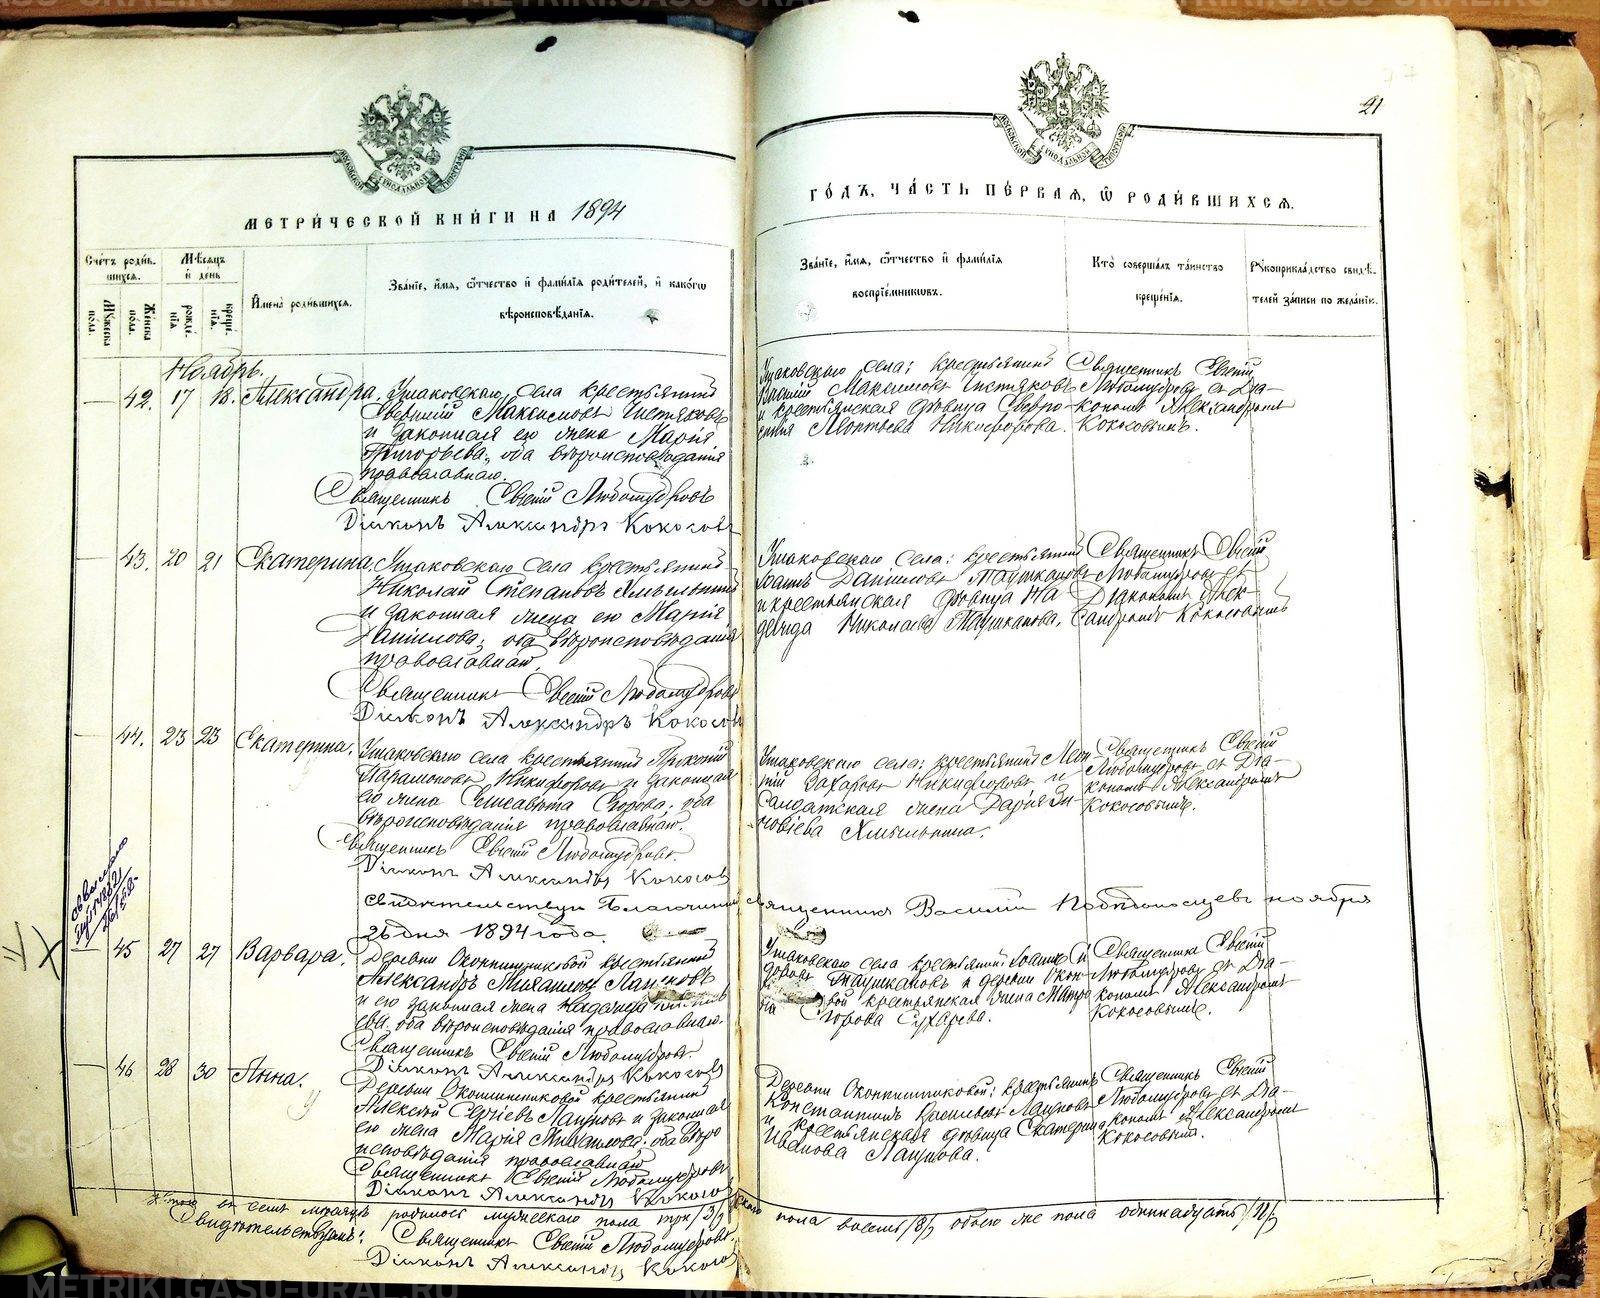 METRIKI.GASU-URAL.RU
21
МОСКОВСКОЙ СУНОДАЛЬНОЙ ТИПОГРАФІИ
МОСКОВСКОЙ СУНОДАЛЬНОЙ ТИПОГРАФІИ
МЕТРИ́ЧЕСКОЙ КНИ́ГИ НА 1894
ГО́ДЪ, ЧА́СТЬ ПЕ́РВАЯ, Ѡ РОДИ́ВШИХСЯ.
Сче́тъ роди́в-
шихся.
Му́жеска по́ла.
Же́нска по́ла.
Мѣ́сяцъ и́ день
рожде́нія
креще́нія.
И́мена̀ роди́вшихся.
Зва́ніе, и́мя, ѻ҆́тчество и҆ фами́лія роди́телей, и҆ како́гѡ
вѣроисповѣ́данія.
Зва́ніе, и҆́мя, ѻ҆́тчество и҆ фами́лія
воспріе́мниковъ.
Кто̀ соверша́лъ та́инство
креще́нія.
Рꙋкоприкла́дство свидѣ́-
телей за́писи по жела́нію.
Ноябрь.
42. 17 18. Александра.
Ушаковскаго села крестьянинъ
Евгеній Максимовъ Чистяковъ
и законная его жена Марія
Григорьева, оба вѣроисповѣданія
православнаго.
Священникъ Евгеній Любомудровъ
Діаконъ Александръ Кокосовъ
Ушаковскаго села: крестьянинъ
Василій Максимовъ Чистяковъ
и крестьянская дѣвица Евфро-
синія Леонтьева Никифорова.
Священникъ Евгеній
Любомудровъ съ Діа-
кономъ Александромъ
Кокосовымъ.
43. 20 21 Екатерина.
Ушаковскаго села крестьянинъ
Николай Степановъ Хмѣльнинъ
и законная жена его Марія
Данилова, оба вѣроисповѣданія
православнаго.
Священникъ Евгеній Любомудровъ
Діаконъ Александръ Кокосовъ
Ушаковскаго села: крестьянинъ
Іоаннъ Даніиловъ Таушкановъ
и крестьянская дѣвица На-
дежда Николаева Таушканова.
Священникъ Евгеній
Любомудровъ съ
Діакономъ Алек-
сандромъ Кокосовымъ
44. 23 23 Екатерина.
Ушаковскаго села крестьянинъ Прокопій
Парамоновъ Никифоровъ и законная
его жена Елисавета Егорова, оба
вѣроисповѣданія православнаго.
Священникъ Евгеній Любомудровъ.
Діаконъ Александръ Кокосовъ
Ушаковскаго села: крестьянинъ Леон-
тій Захаровъ Никифоровъ и
солдатская жена Дарія Зи-
новіева Хмыльнина.
Священникъ Евгеній
Любомудровъ съ Діа-
кономъ Александромъ
Кокосовымъ.
Свидѣтельствую Благочинный священникъ Василій Побѣдоносцевъ ноября
26 дня 1894 года.
45 27 27 Варвара.
Деревни Оконишниковой крестьянинъ
Александръ Лапуновъ
и его законная жена Надежда
ева, оба вѣроисповѣданія православнаго.
Священникъ Евгеній Любомудровъ.
Діаконъ Александръ Кокосовъ
Ушаковскаго села крестьянинъ Іоаннъ Ѳ
доровъ Таушкановъ и деревни Окон-
вой крестьянская жена Матро
на Егорова Сухарева.
Священникъ Евгеній
Любомудровъ съ Діа-
кономъ Александромъ
Кокосовымъ.
46 28 30 Анна.
Деревни Оконишниковой крестьянинъ
Алексій Сергіевъ Лапуновъ и законная
его жена Марія Михаилова, оба вѣро
исповѣданія православнаго
Священникъ Евгеній Любомудровъ
Діаконъ Александръ Кокосовъ
Деревни Оконишниковой: крестьянинъ
Константинъ Васильевъ Лапуновъ
и крестьянская дѣвица Екатерина
Иванова Лапунова.
Священникъ Евгеній
Любомудровъ съ Діа-
кономъ Александромъ
Кокосовымъ.
Итого въ семъ мѣсяцѣ родилось мужескаго пола три /3/, женскаго пола восемь /8/, обоего же пола одиннадцать /11/,
Свидѣтельствуемъ: Священникъ Евгеній Любомудровъ.
Діаконъ Александръ Кокосовъ
METRIKI.GASU-URAL.RU